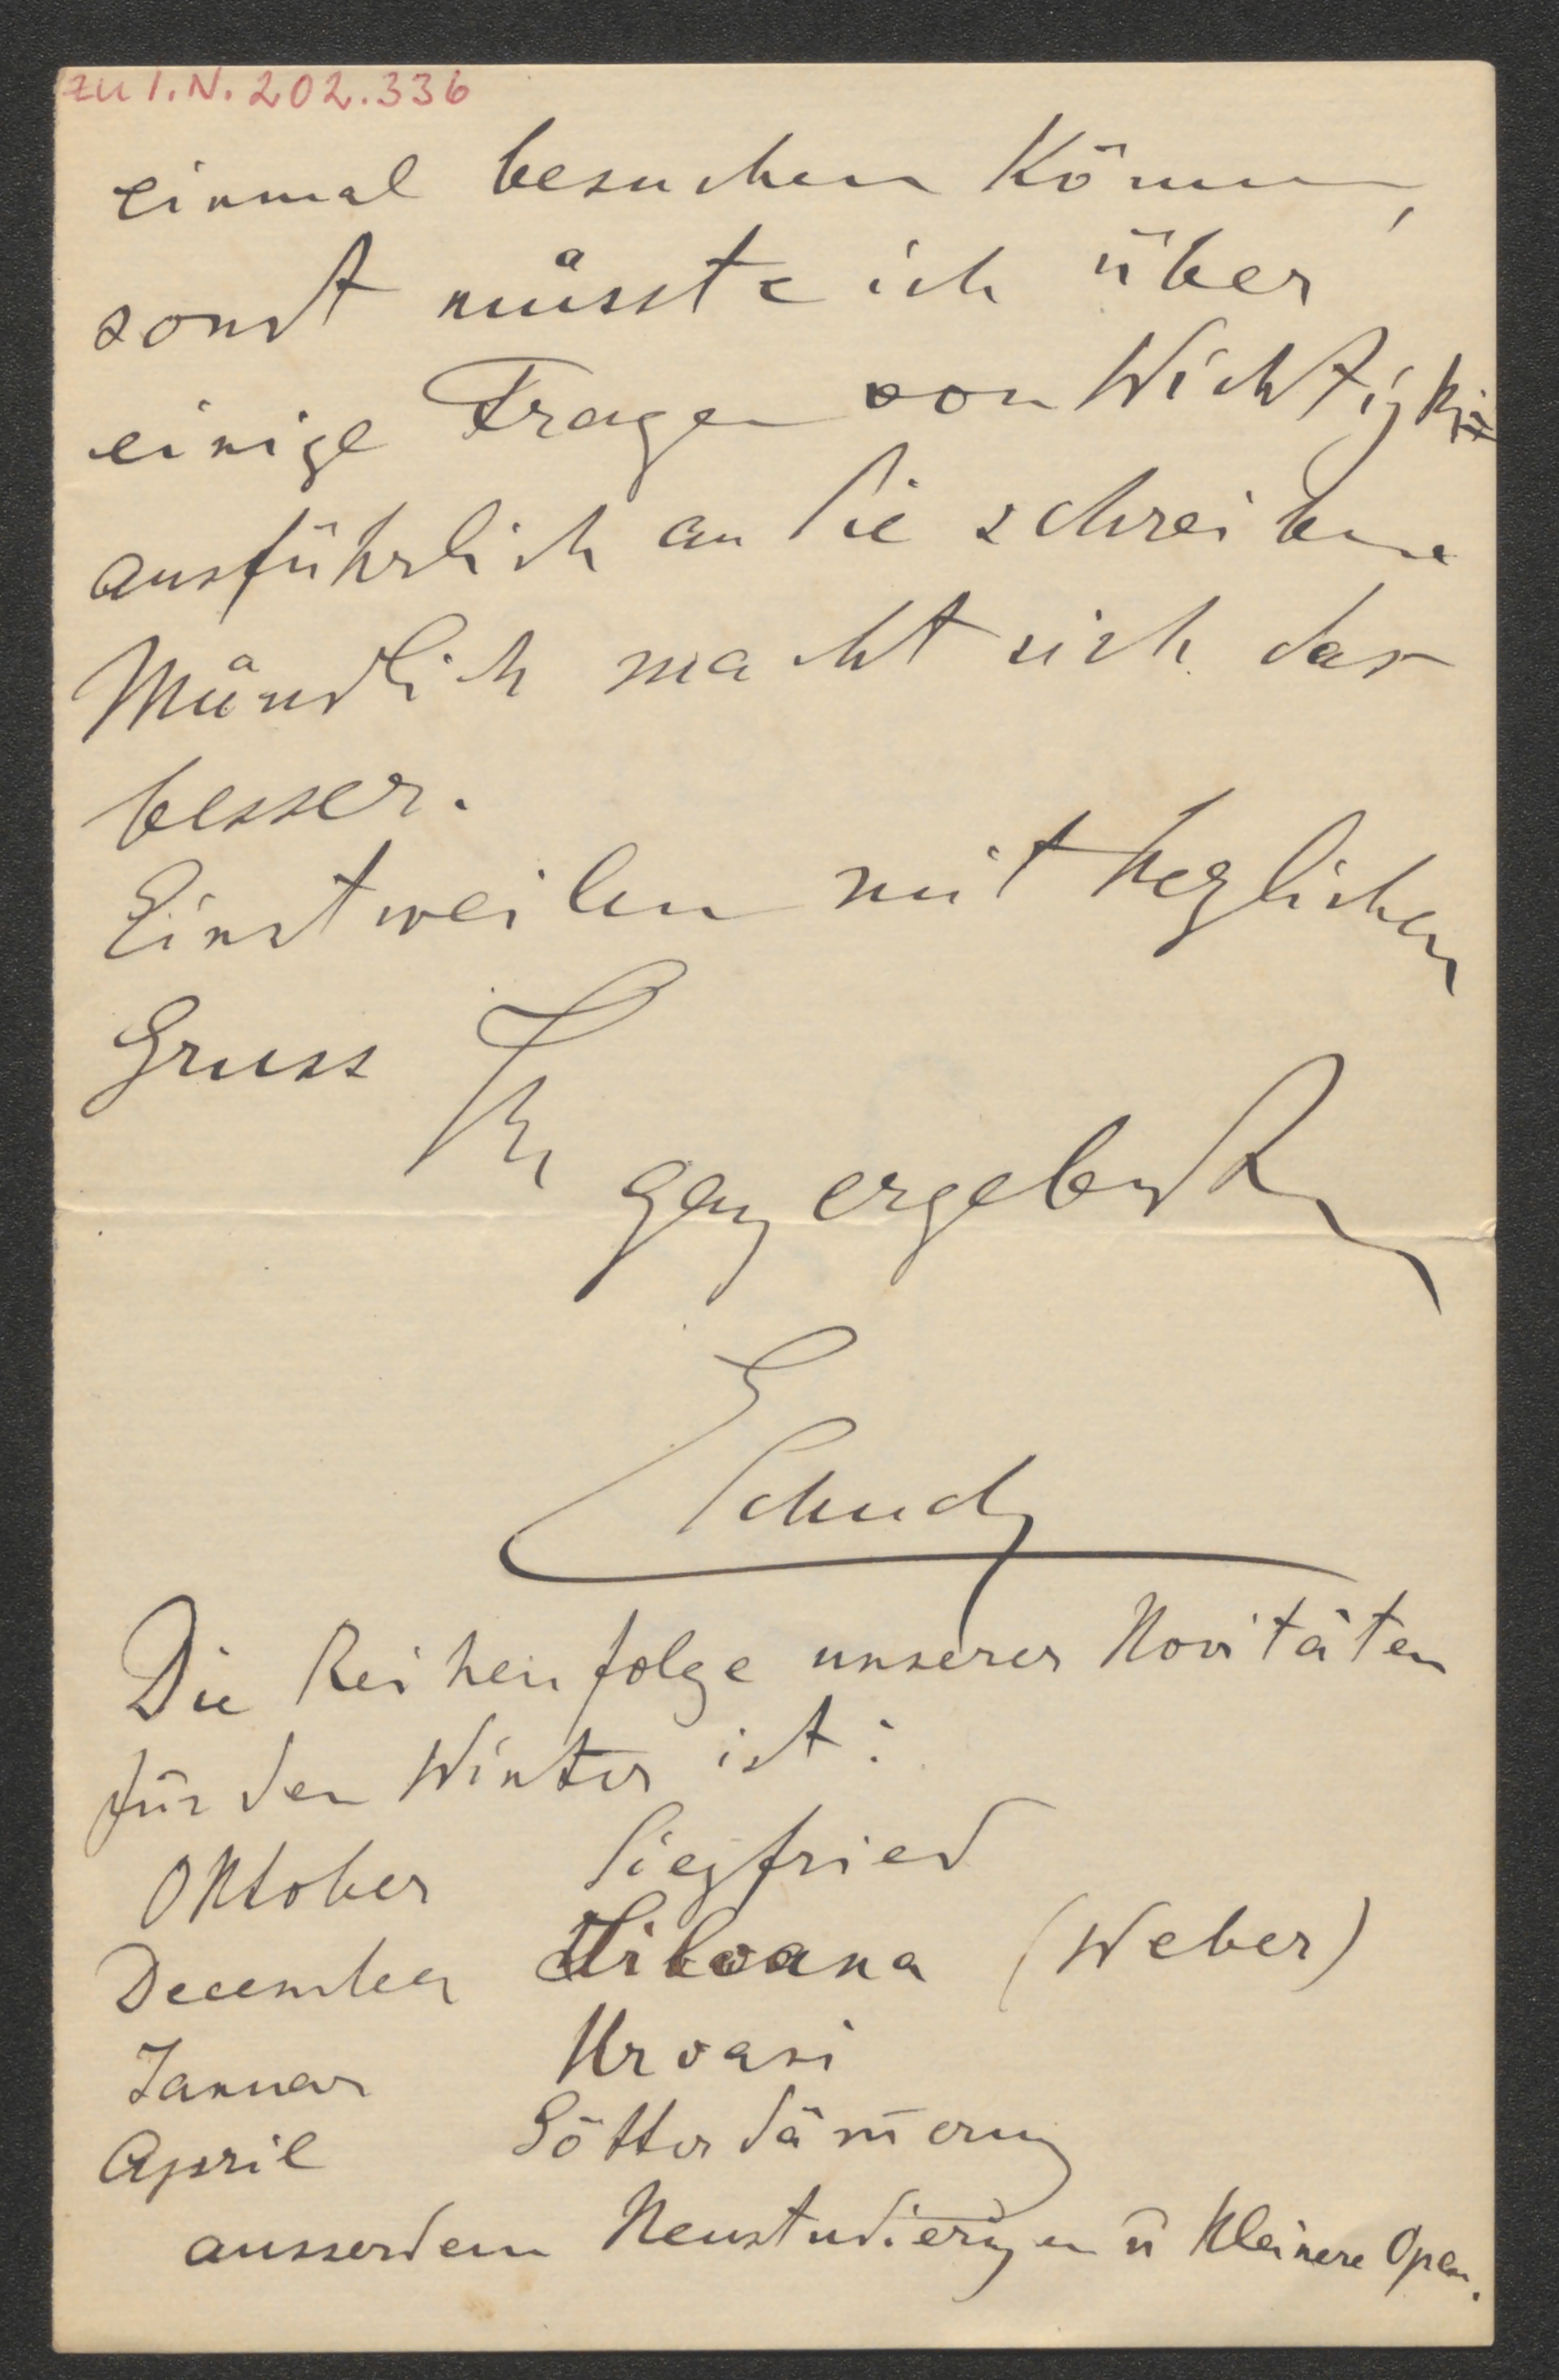 zu I.N. 202.336
einmal besuchen können,
sonst müsste ich über
einige Fragen von Wichtigkeit
ausführlich an Sie schreiben
Mündlich macht sich das
besser.
Einstweilen mit herzlichen
Gruss Ihr
ganz ergebenster
ESchuch
Die Reihenfolge unserer Novitäten
für den Winter ist:
Oktober Siegfried
December Silvana (Weber)
Januar Urvasi
April Götterdäm̄erung
ausserdem Neustudierungen ū kleinere Opern.